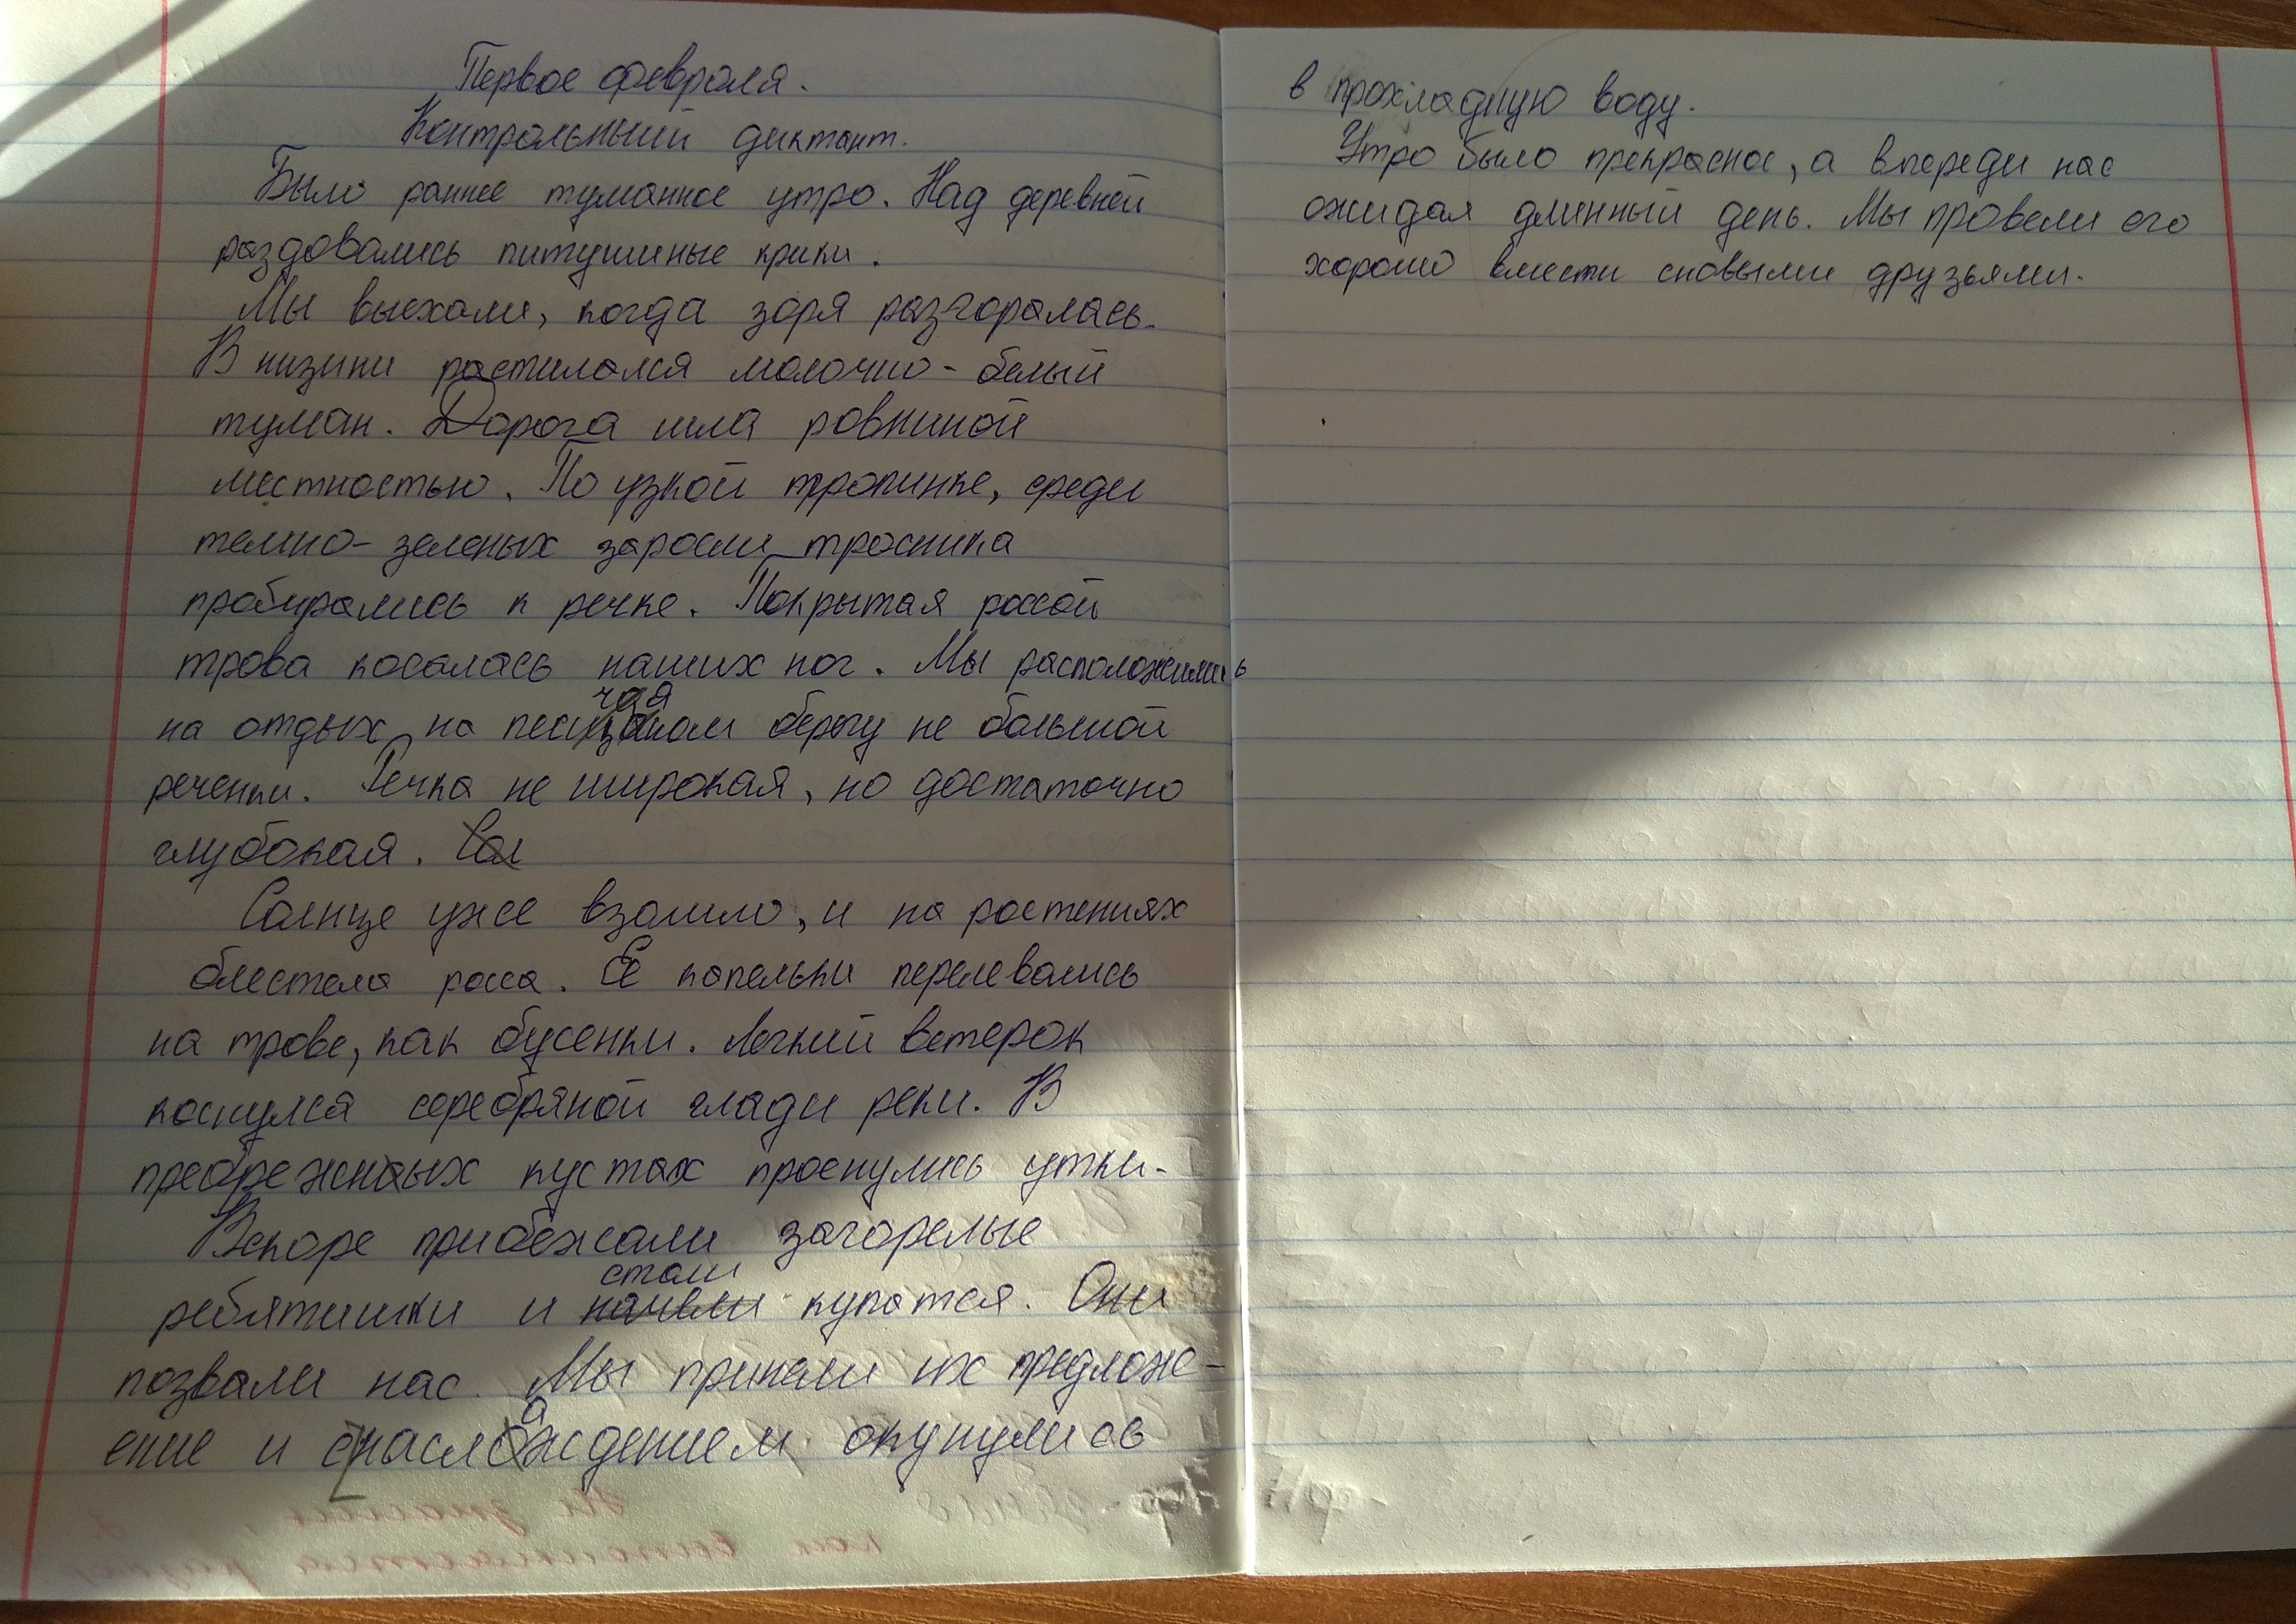 Первое февраля.
Контрольный диктант.
Было раннее туманное утро. Над деревней
раздовались питушиные крики.
Мы выехали, когда заря разгоралась.
В низини растилался молочно-белый
туман. Дорога шла ровниной
местностью. По узкой тропинке, среди
темно-зеленых заросли тросника
пробирались к речке. Покрытая росой
трова косалась наших ног. Мы расположились
на отдых на песчаном берегу не большой
реченки. Речка не широкая, но достаточно
глубокая. Сол
Солнце уже взошло, и на растениях
блестела роса. Её капельки перелевались
на трове, как бусенки. Легкий ветерок
коснулся серебряной глади реки. В
пребрежных кустах проснулись утки.
Вскоре прибежали загорелые
ребятишки и стали купатся. Они
позвали нас. Мы приняли их предложе-
ение и с наслаждением окунулись
в прохладную воду.
Утро было прекрасное, а впереди нас
ожидал длинный день. Мы провели его
хорошо вмести сновыми друзьями.